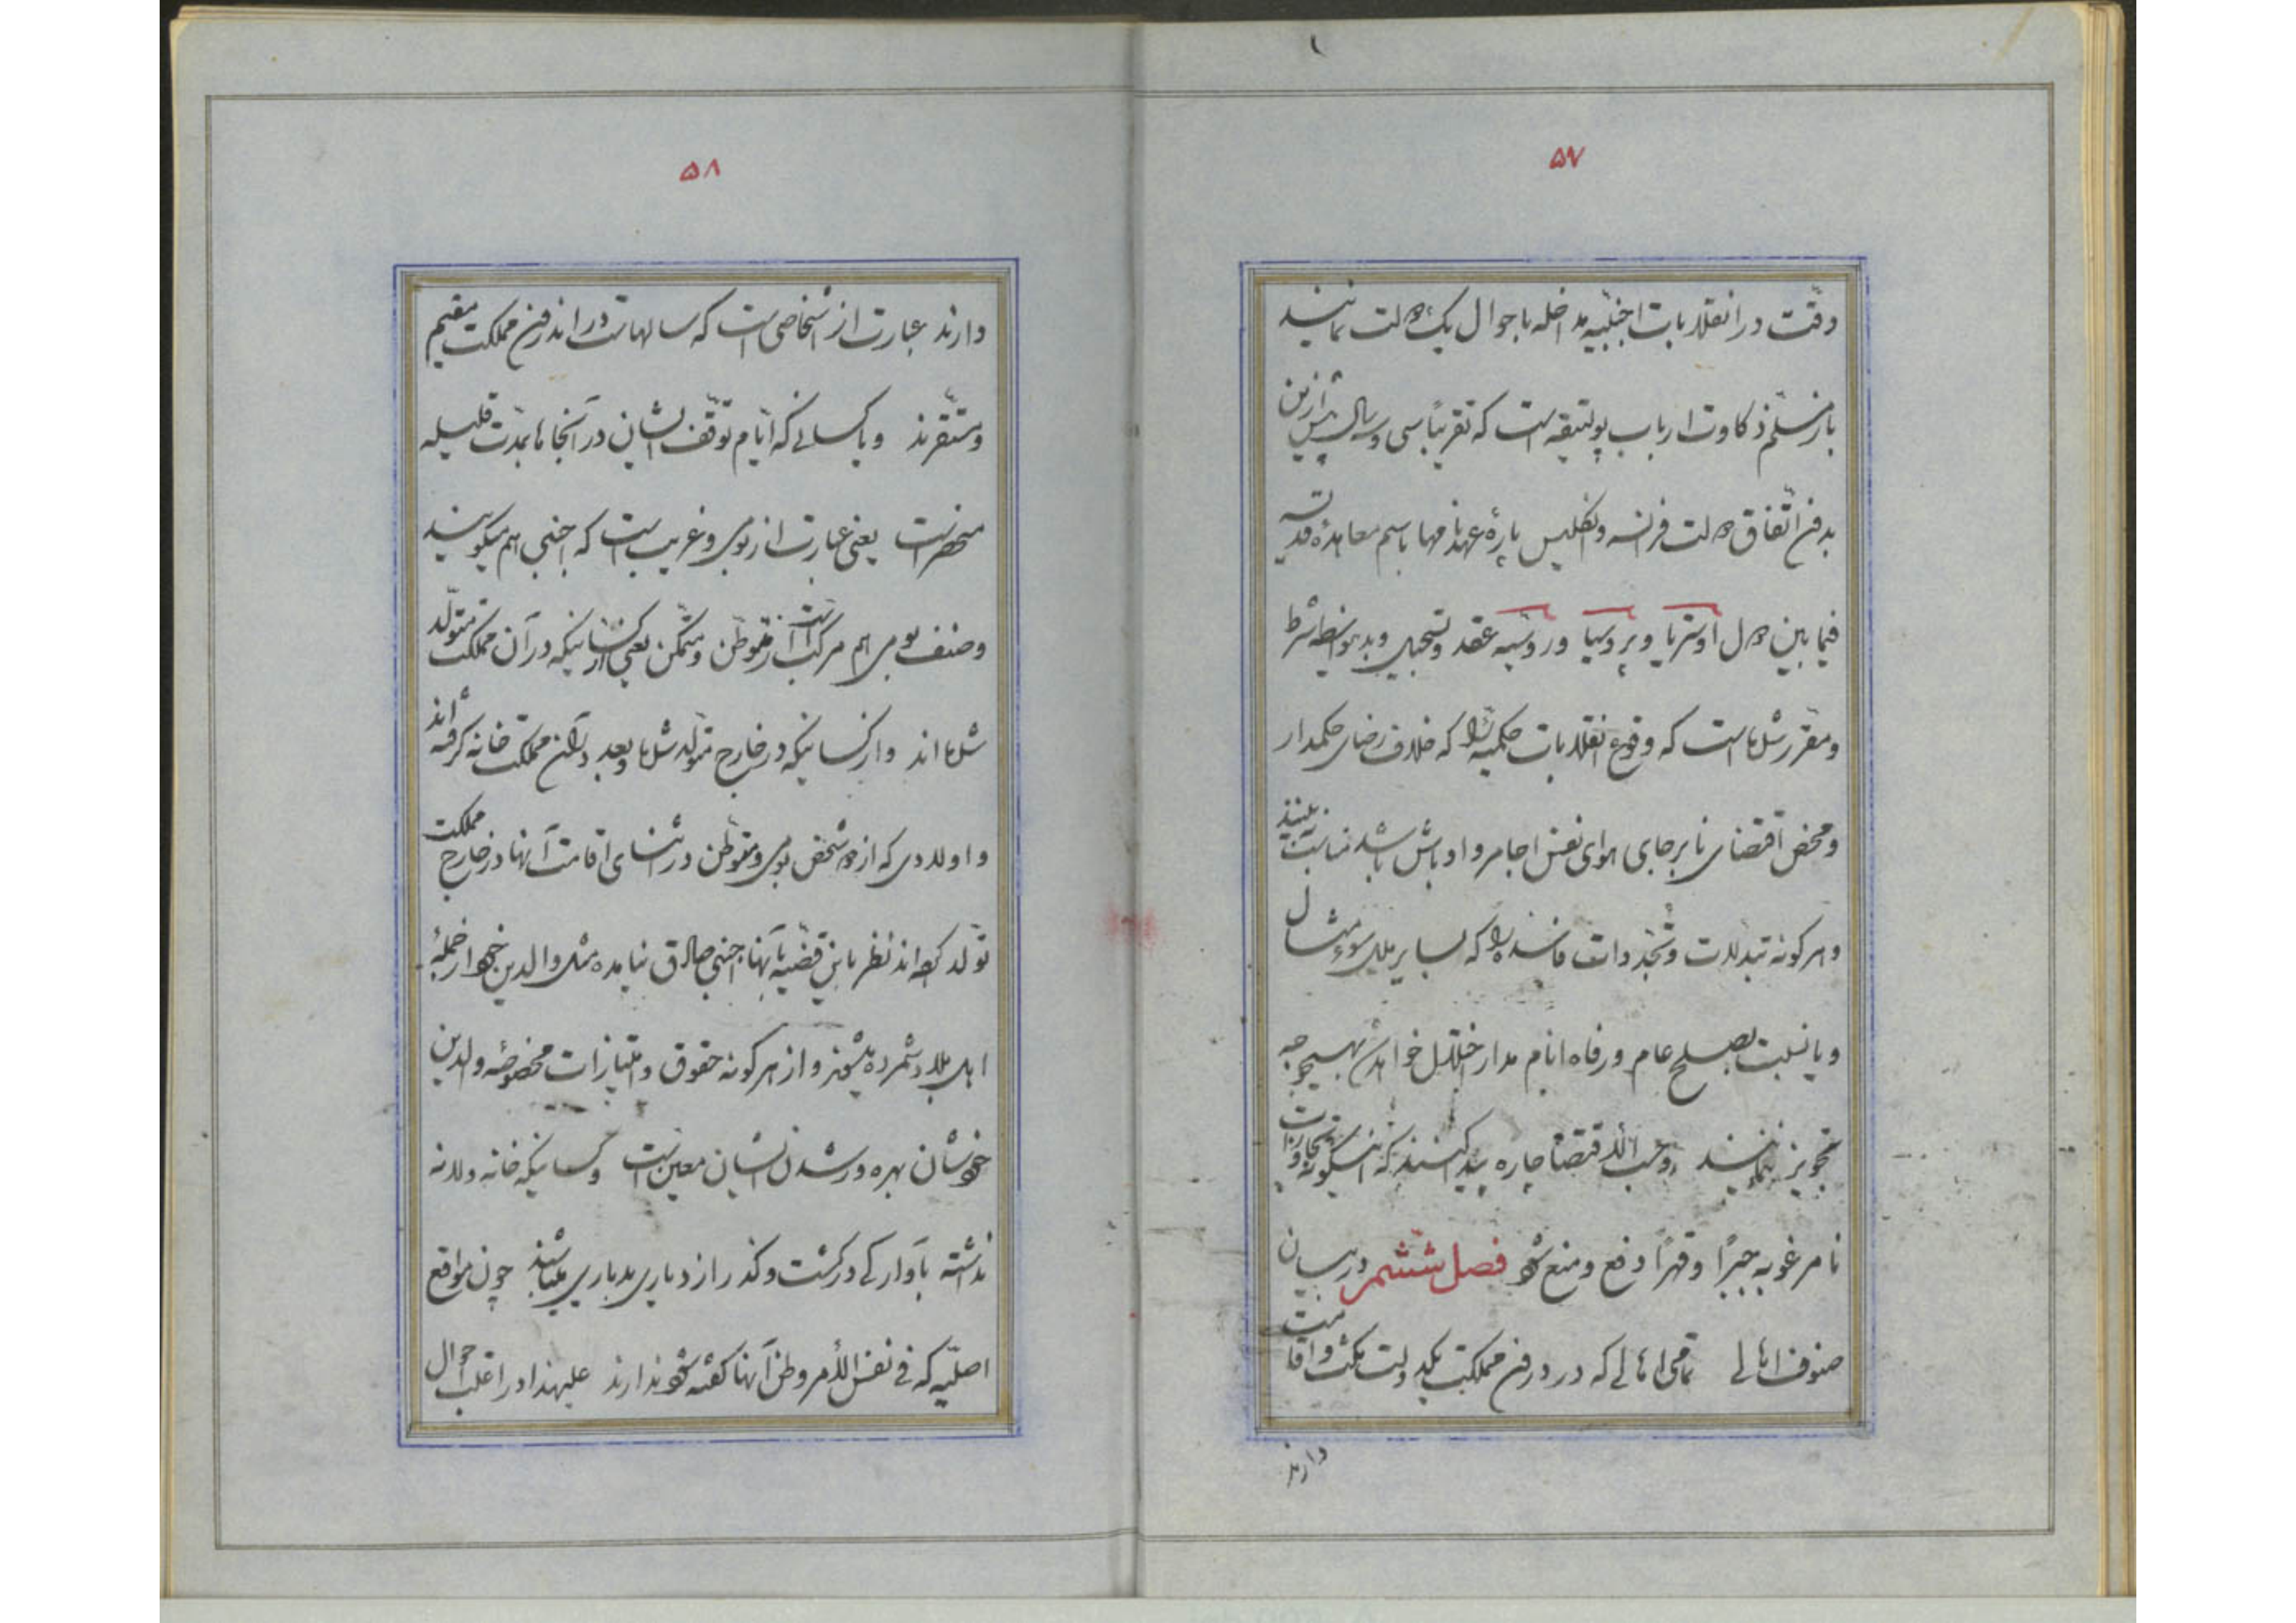 ۵۷
وقت در انقلابات اجنبیه مداخله باحوال یک دولت نمایند
بارز مسلم ذکاوت ارباب پولتیقه است که تقریباً سی و سال پیش ازین
بدون اتفاق دولت فرانسه و انگلیس پارهٔ عهدنامها باسم معاهدهٔ
فیما بین دول اوستریا و پروسیا و روسیه عقد و تسجیل و بدینواسطه شرط
و مقرر شده است که وقوع انقلابات حکمیه را که خلاف رضای حکمدار
و محض اقتضای نابرجای هوای نفس اجامر و اوباش باشد
و هر گونه تبدلات و تجددات فاسده را که بسایر ملل سوء مثال
و یا نسبت بصلح عام و رفاه انام مدار اختلال خواهد شد بهیچوجه
تجویز ننمایند و حسب الاقتضا چاره پیدا کنند که اینگونه تجاوزات
نامرغوبه جبراً و قهراً دفع و منع شود فصل ششم در بیان
صنوف اهالی تمامی اهالی که در درون مملکت یکدولت مکث و اقامت
دارند
۵۸
دارند عبارت از اشخاصی است که سالهاست در اندرون مملکت مقیم
و مستقرند و یا کسانی که ایام توقف ایشان در آنجاها بمدت قلیله
منحصر است یعنی عبارت از بومی و غریب است که اجنبی هم میگویند
و صنف بومی هم مرکب است از متوطن و متمکن یعنی از کسانیکه در آن مملکت متولد
شده اند و از کسانیکه در خارج متولد شده و بعد در آن مملکت خانه گرفته اند
و اولادی که از دو شخص بومی و متوطن در اثنای اقامت آنها در خارج مملکت
تولد کرده اند نظر باین قضیه بآنها اجنبی صادق نیامده مثل والدین خود از جملهٔ
اهل بلاد شمرده میشوند و از هر گونه حقوق و امتیازات مخصوصهٔ والدین
خودشان بهره ور شدن ایشان معین است و کسانیکه خانه و لانه
نداشته بآوارگی در گشت و گذار از دیاری بدیاری میباشند چون مواقع
اصلیه که فی نفس الأمر وطن آنها گفته شود ندارند علیهذا در اغلب احوال